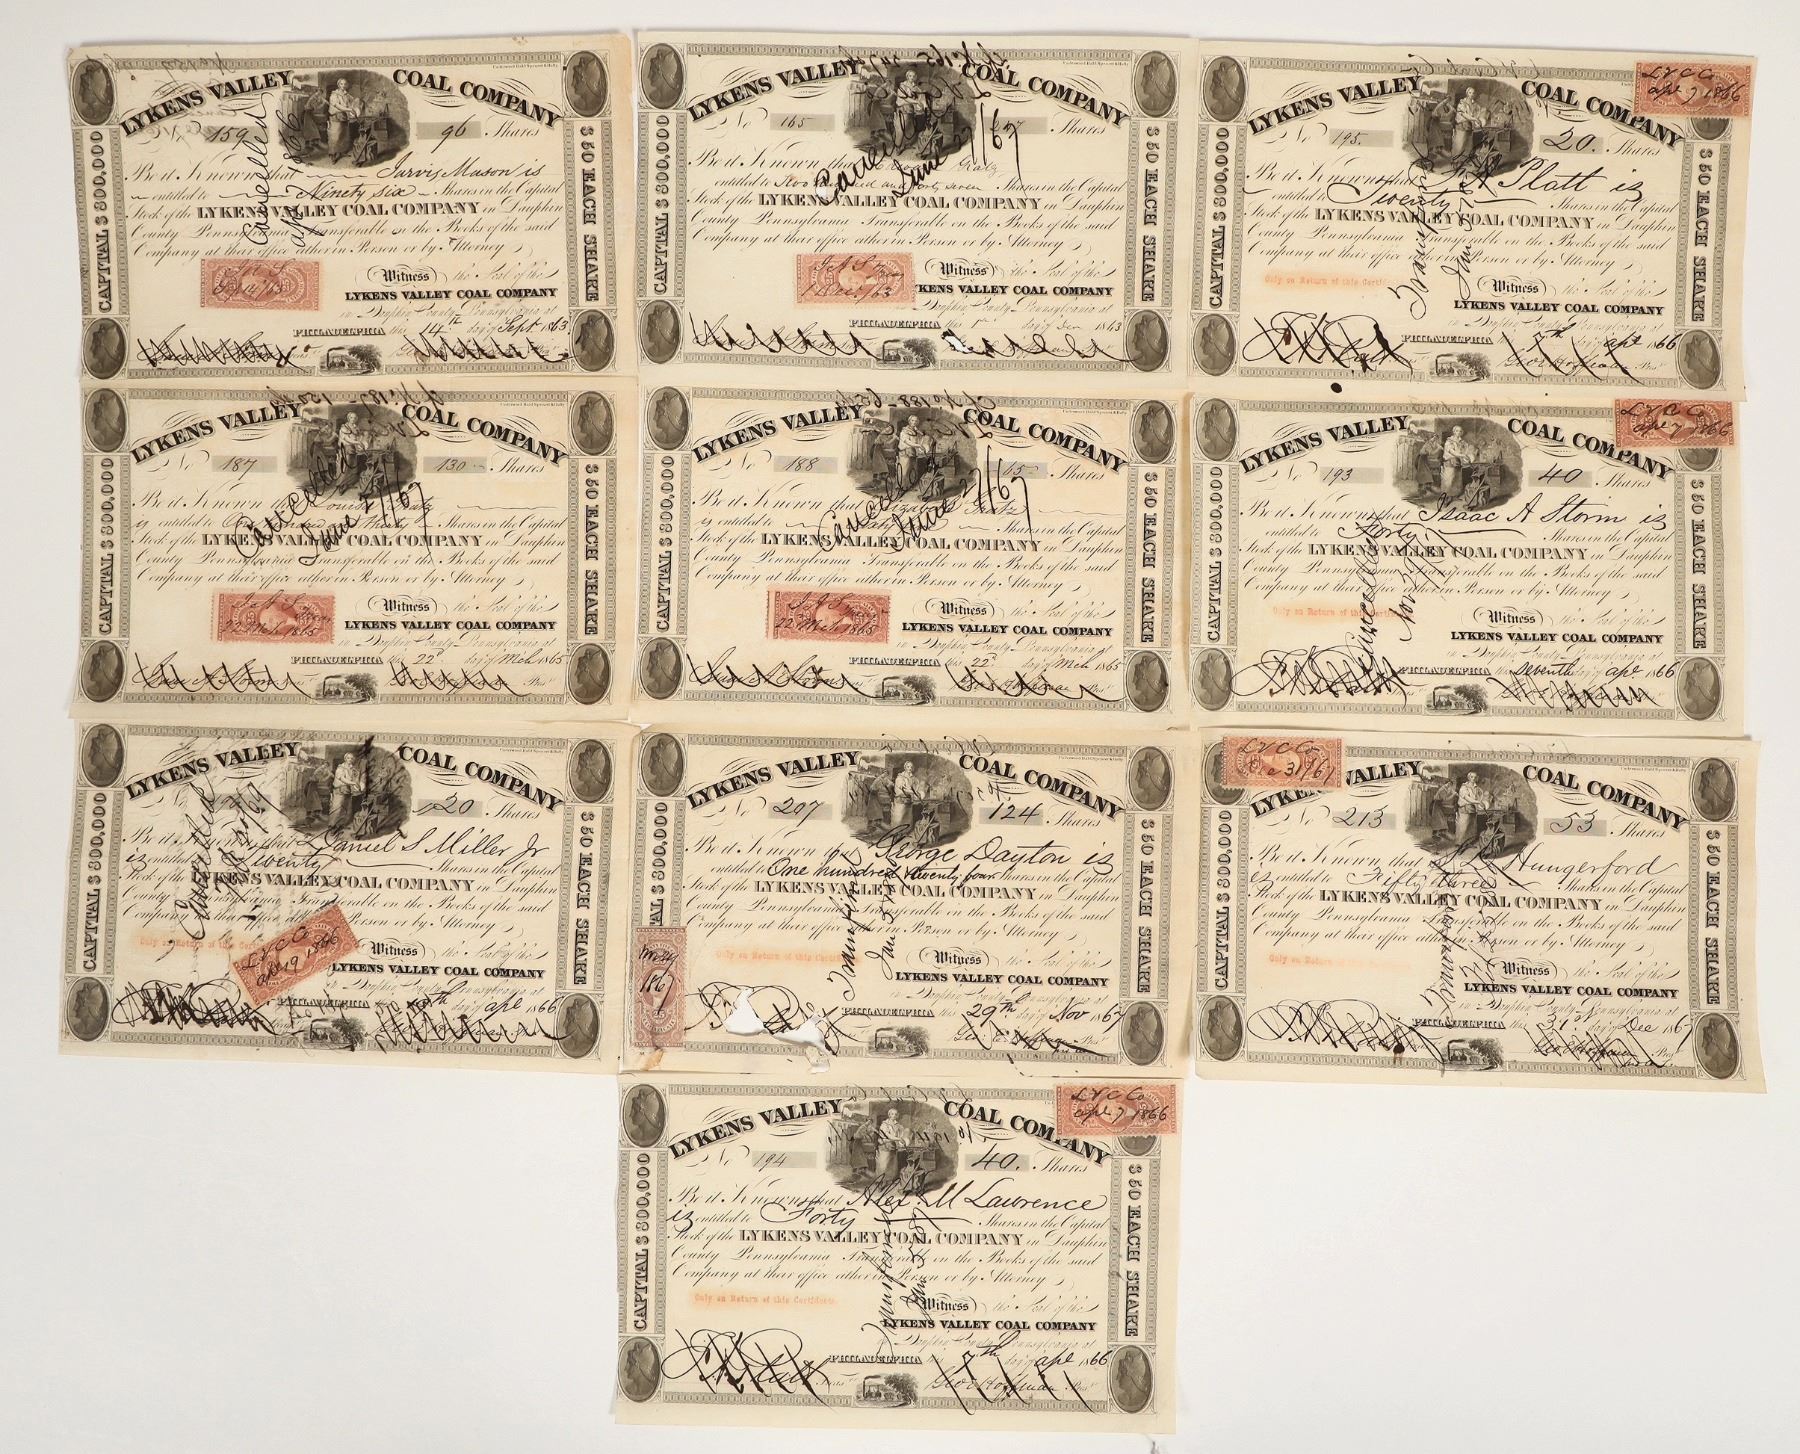 LYKENS VALLEY COAL COMPANY
No 159 96 Shares
Be it Known that Jarvis Mason is
entitled to Ninety six Shares in the Capital
Stock of the LYKENS VALLEY COAL COMPANY in Dauphin
County Pennsylvania Transferable on the Books of the said
Company at their office either in Person or by Attorney
CAPITAL $ 800,000
$ 50 EACH SHARE
Cancelled
1866
Witness the Seal of the
LYKENS VALLEY COAL COMPANY
in Dauphin County Pennsylvania at
PHILADELPHIA this 14th day of Sept 1863
LYKENS VALLEY COAL COMPANY
No 165 Shares
Be it Known that Gratz
entitled to Two hundred and forty seven Shares in the Capital
Stock of the LYKENS VALLEY COAL COMPANY in Dauphin
County Pennsylvania Transferable on the Books of the said
Company at their office either in Person or by Attorney
CAPITAL $ 800,000
$ 50 EACH SHARE
Cancelled
June 27/67
Witness the Seal of the
LYKENS VALLEY COAL COMPANY
in Dauphin County Pennsylvania at
PHILADELPHIA this 1st day of Dec 1863
LYKENS VALLEY COAL COMPANY
L V C Co
apl 7 1866
No 195. 20. Shares
Be it Known that Platt is
entitled to Twenty Shares in the Capital
Stock of the LYKENS VALLEY COAL COMPANY in Dauphin
County Pennsylvania Transferable on the Books of the said
Company at their office either in Person or by Attorney
CAPITAL $ 800,000
$ 50 EACH SHARE
Only on Return of this Certificate
Witness the Seal of the
LYKENS VALLEY COAL COMPANY
in Dauphin County Pennsylvania at
PHILADELPHIA this 7th day of apl 1866
Geo E Hoffman Prest
LYKENS VALLEY COAL COMPANY
No 187 130 Shares
Be it Known that Louisa Gratz
is entitled to One hundred and thirty Shares in the Capital
Stock of the LYKENS VALLEY COAL COMPANY in Dauphin
County Pennsylvania Transferable on the Books of the said
Company at their office either in Person or by Attorney
CAPITAL $ 800,000
$ 50 EACH SHARE
Cancelled
June 27/67
22 Mch 1865
Witness the Seal of the
LYKENS VALLEY COAL COMPANY
in Dauphin County Pennsylvania at
PHILADELPHIA this 22d day of Mch 1865
LYKENS VALLEY COAL COMPANY
No 188 65 Shares
Be it Known that Elizabeth Gratz
is entitled to Shares in the Capital
Stock of the LYKENS VALLEY COAL COMPANY in Dauphin
County Pennsylvania Transferable on the Books of the said
Company at their office either in Person or by Attorney
CAPITAL $ 800,000
$ 50 EACH SHARE
Cancelled
June 27/67
22 Mch 1865
Witness the Seal of the
LYKENS VALLEY COAL COMPANY
in Dauphin County Pennsylvania at
PHILADELPHIA this 22d day of Mch 1865
LYKENS VALLEY COAL COMPANY
L V C Co
apl 7 1866
No 193 40 Shares
Be it Known that Isaac A Storm is
entitled to Forty Shares in the Capital
Stock of the LYKENS VALLEY COAL COMPANY in Dauphin
County Pennsylvania Transferable on the Books of the said
Company at their office either in Person or by Attorney
CAPITAL $ 800,000
$ 50 EACH SHARE
Cancelled
Only on Return of this Certificate
Witness the Seal of the
LYKENS VALLEY COAL COMPANY
in Dauphin County Pennsylvania at
PHILADELPHIA this seventh day of apl 1866
LYKENS VALLEY COAL COMPANY
No 20 Shares
Be it Known that Daniel S Miller Jr
is entitled to Twenty Shares in the Capital
Stock of the LYKENS VALLEY COAL COMPANY in Dauphin
County Pennsylvania Transferable on the Books of the said
Company at their office either in Person or by Attorney
CAPITAL $ 800,000
$ 50 EACH SHARE
Cancelled
Only on Return of this
L V C Co
apl 19 1866
Witness the Seal of the
LYKENS VALLEY COAL COMPANY
in Dauphin County Pennsylvania at
PHILADELPHIA this day of apl 1866
LYKENS VALLEY COAL COMPANY
No 207 124 Shares
Be it Known that George Dayton is
entitled to One hundred & twenty four Shares in the Capital
Stock of the LYKENS VALLEY COAL COMPANY in Dauphin
County Pennsylvania Transferable on the Books of the said
Company at their office either in Person or by Attorney
$ 800,000
$ 50 EACH SHARE
Only on Return of this Certificate
1867
Witness the Seal of the
LYKENS VALLEY COAL COMPANY
in Dauphin County Pennsylvania at
PHILADELPHIA this 29th day of Nov 1867
LYKENS VALLEY COAL COMPANY
L V C Co
Dec 31/67
No 213 53 Shares
Be it Known that Hungerford
is entitled to Fifty three Shares in the Capital
Stock of the LYKENS VALLEY COAL COMPANY in Dauphin
County Pennsylvania Transferable on the Books of the said
Company at their office either in Person or by Attorney
CAPITAL $ 800,000
$ 50 EACH SHARE
Only on Return of this
Witness the Seal of the
LYKENS VALLEY COAL COMPANY
in Dauphin County Pennsylvania at
PHILADELPHIA this 31st day of Dec 1867
LYKENS VALLEY COAL COMPANY
L V C Co
apl 7 1866
No 194 40. Shares
Be it Known that Alex. M Lawrence
is entitled to Forty Shares in the Capital
Stock of the LYKENS VALLEY COAL COMPANY in Dauphin
County Pennsylvania Transferable on the Books of the said
Company at their office either in Person or by Attorney
CAPITAL $ 800,000
$ 50 EACH SHARE
Only on Return of this Certificate
Witness the Seal of the
LYKENS VALLEY COAL COMPANY
in Dauphin County Pennsylvania at
PHILADELPHIA this 7th day of apl 1866
Geo E Hoffman Prest